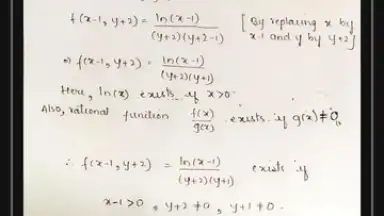 f(x-1, y+2) = ln(x-1) / (y+2)(y+2-1) [By replacing x by x-1 and y by y+2]
⇒ f(x-1, y+2) = ln(x-1) / (y+2)(y+1)
Here, ln(x) exists if x>0.
Also, rational function f(x)/g(x) exists if g(x)≠0,
∴ f(x-1, y+2) = ln(x-1) / (y+2)(y+1) exists if
x-1>0, y+2≠0, y+1≠0.